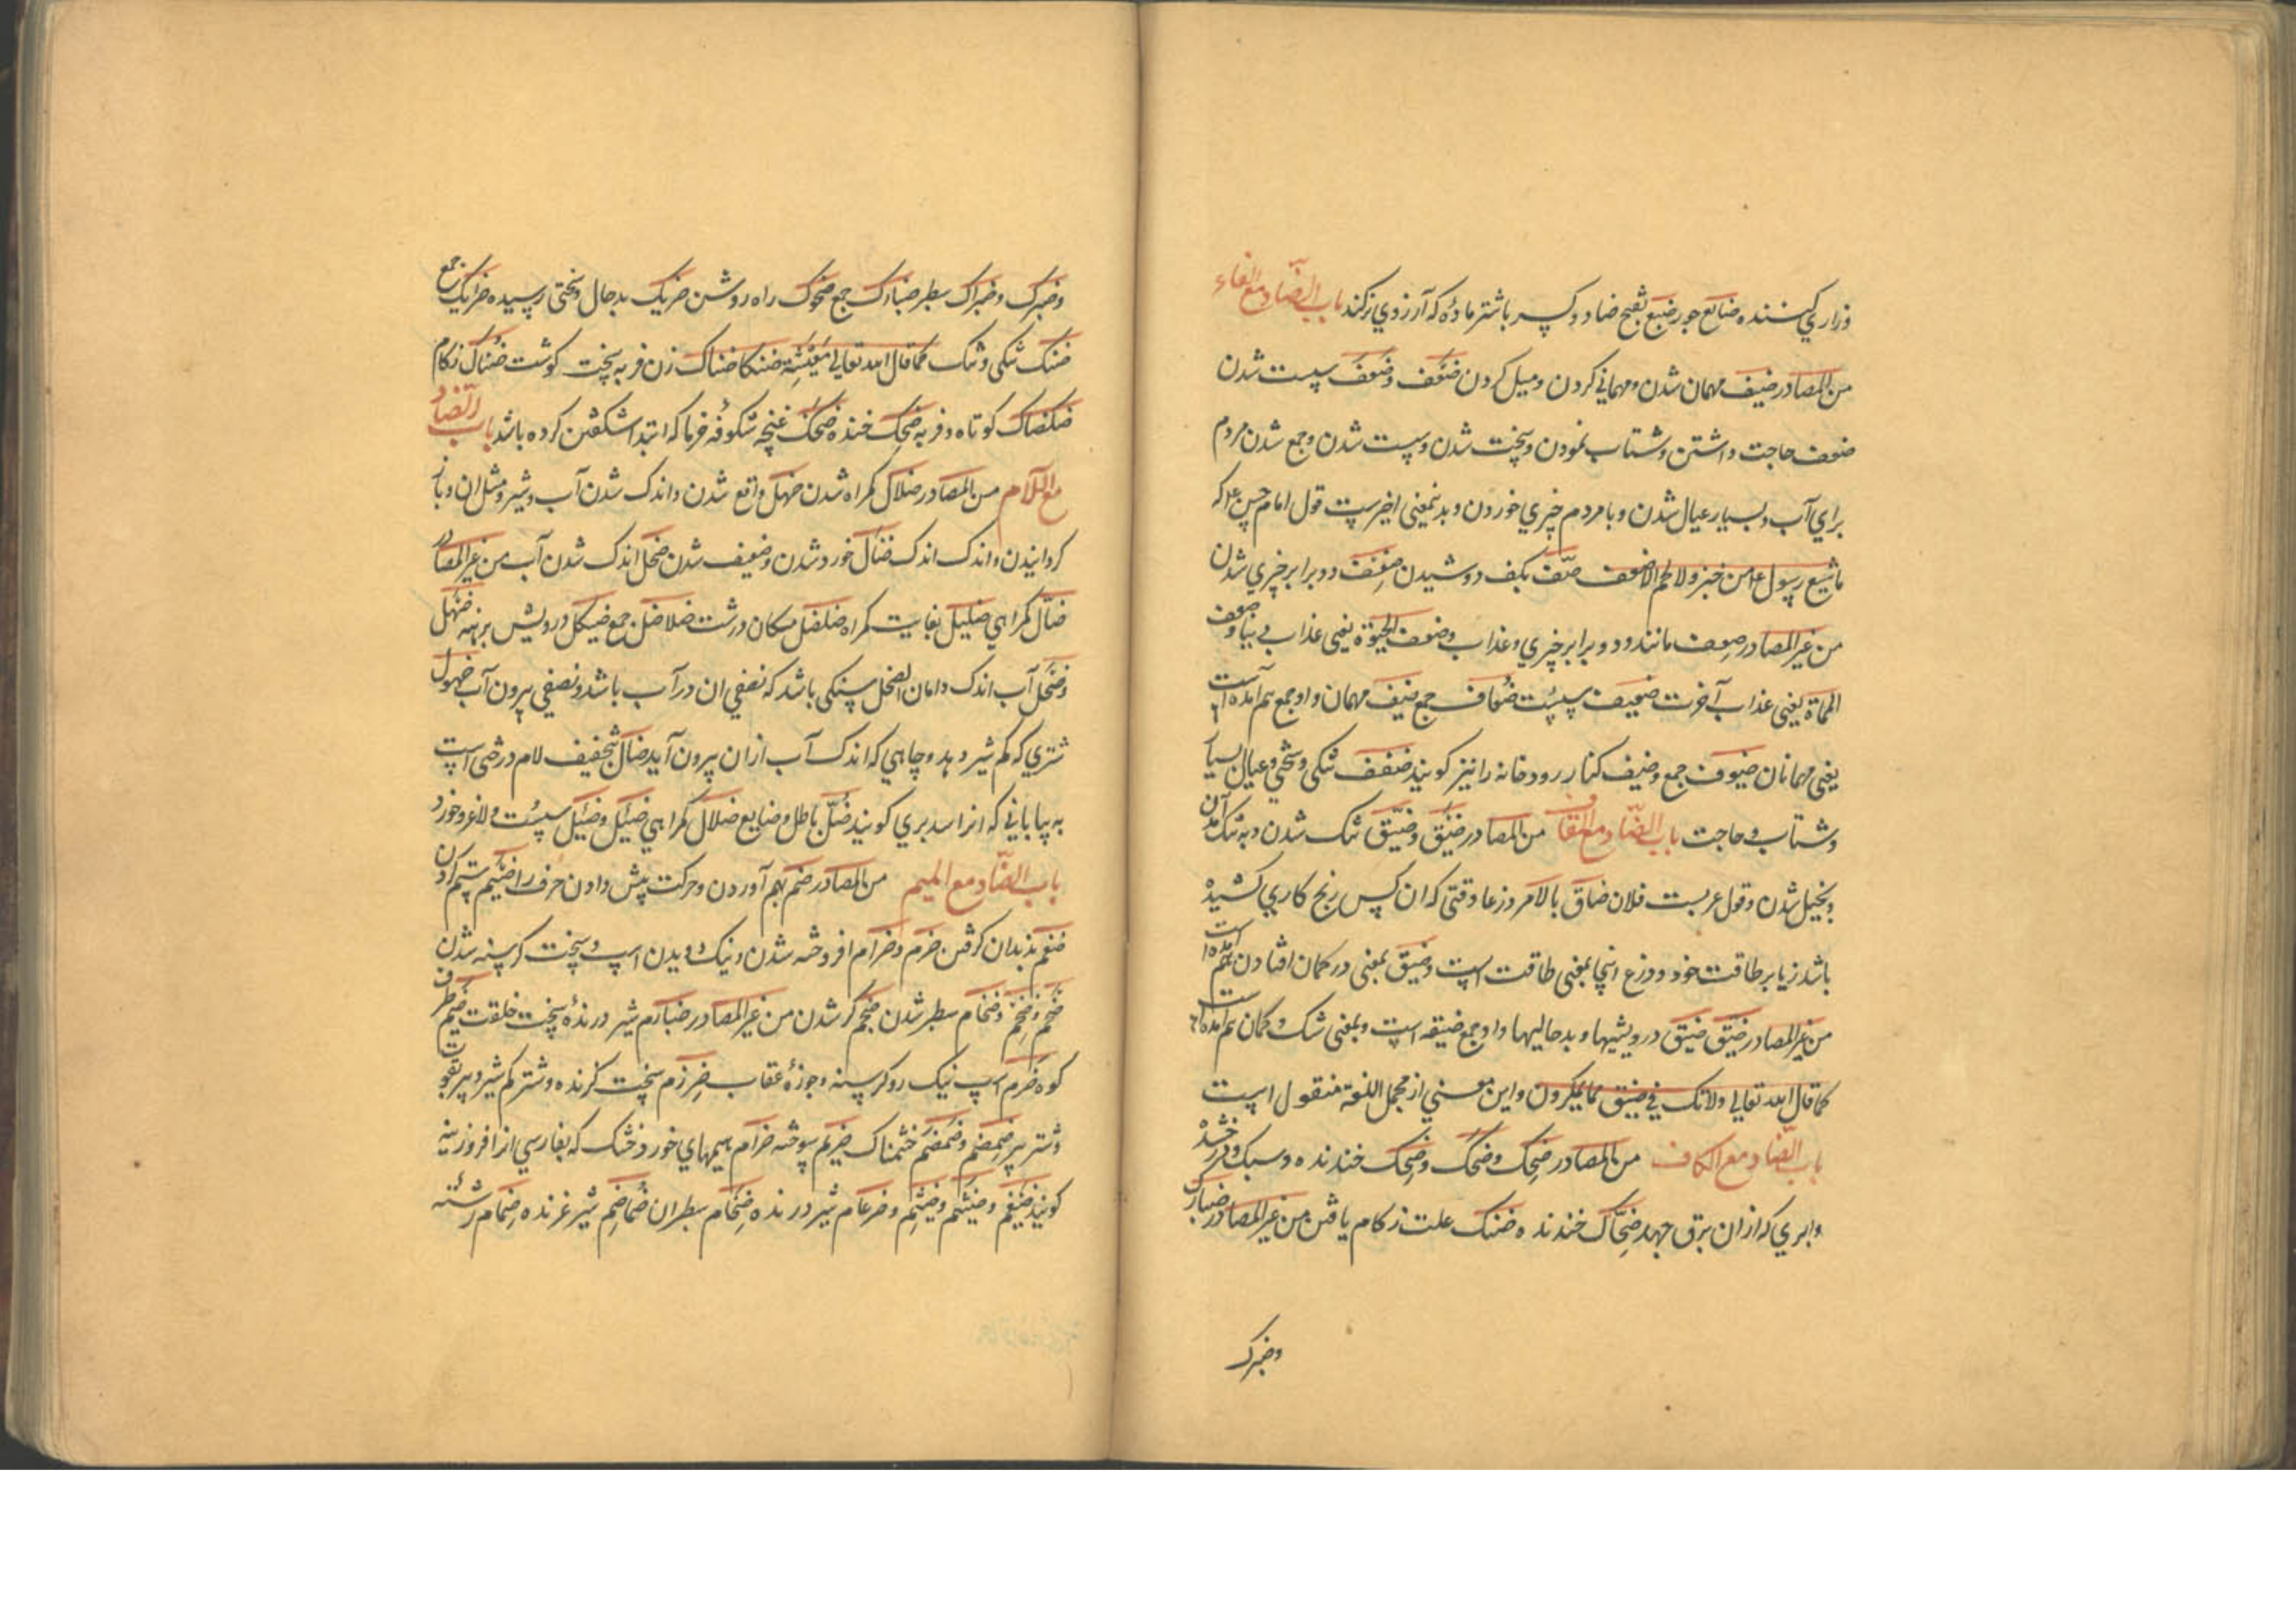 وزاري کننده ضایع جور ضبع بفتح ضاد و کسر با شتر ماده که آرزوي نر کند باب الضاد مع الفاء
من المصادر ضیف مهمان شدن و مهماني کردن و میل کردن ضعف و ضعف سست شدن
ضفف حاجت داشتن و شتاب نمودن و سخت شدن و سست شدن و جمع شدن مردم
براي آب و بسیار عیال شدن و با مردم چیزي خوردن و بدینمعني اخیرست قول امام حسن ع م که
ما شبع رسول ع م من خبز و لا لحم الا ضفف ضف بکف دوشیدن ضعف دو برابر چیزي شدن
من غیر المصادر ضعف مانند و دو برابر چیزي و عذاب و ضعف الحیوة یعني عذاب دنیا و ضعف
المماة یعني عذاب آخرت ضعیف سست ضعاف جمع ضیف مهمان و او جمع هم آمده است
یعني مهمانان ضیوف جمع و ضیف کنار رودخانه را نیز کویند ضفف تنکي و سختي و عیال بسیار
و شتاب و حاجت باب الضاد مع القاف من المصادر ضیق و ضیق تنک شدن و به تنک آمدن
و بخیل شدن و قول عربست فلان ضاق بالامر ذرعا وقتي که ان کس رنج کاري کشیده
باشد زیاده بر طاقت خود و ذرع اینجا بمعني طاقت است و ضیق بمعني در کمان افتادن هم آمده است
من غیر المصادر ضیق ضیق درویشیها و بدحالیها و او جمع ضیقه است و بمعني شک و کمان هم آمده است
کما قال الله تعالي ولا تک في ضیق مما یمکرون و این معني از مجمل اللغة منقول است
باب الضاد مع الکاف من المصادر ضحک و ضحک و ضحک خندنده و سبک و درخشنده
و ابري که از ان برق جهد ضحاک خندنده ضنک علت زکام یافتن من غیر المصادر ضبارک
وضبرک
وضبرک وضبراک سطبر ضبارک جمع ضحوک راه روشن ضریک بدحال و سختي رسیده ضرایک جمع
ضنک تنکي و تنک کما قال الله تعالي معیشة ضنکا ضناک زن فربه سخت کوشت ضناک زکام
ضکضاک کوتاه و فربه ضحک خنده ضحک غنچه شکوفه خرما که ابتدا شکفتن کرده باشد باب الضاد
مع اللام من المصادر ضلال کمراه شدن ضهل واقع شدن و اندک شدن آب و شیر و مثل ان و باز
کردانیدن و اندک اندک ضئال خورد شدن و ضعیف شدن ضحل اندک شدن آب من غیر المصادر
ضال کمراهي ضلیل بغایت کمراه ضلضل مکان درشت ضلاضل جمع ضیکل درویش برهنه ضهل
وضحل آب اندک و امان الضحل سنکي باشد که نصفي ان در آب باشد و نصفي بیرون آب ضهول
شتري که کم شیر دهد و چاهي که اندک آب از ان بیرون آید ضال بتخفیف لام درختي است
به بیاباني که انرا سدر بري کویند ضل باطل و ضایع ضلال کمراهي ضئیل و ضئیل سست و لاغر و خورد
باب الضاد مع المیم من المصادر ضم بهم آوردن و حرکت پیش دادن حرف را ضیم ستم کردن
ضغم بدندان کرفتن ضرم و ضرام افروخته شدن و نیک دویدن اسپ و سخت کرسنه شدن
ضخم وضخم وضخام سطبر شدن ضجم کژ شدن من غیر المصادر ضبارم شیر درنده سخت خلقت ضیم طرف
کوه ضرم اسپ نیک رو و کرسنه و جوزهٔ عقاب ضرزم سخت کزنده و شتر کم شیر و پیر بقوت
و شتر پیر ضمضم وضمضم خشمناک ضریم سوخته ضرام هیمهاي خورد خشک که بفارسي انرا فروزینه
کویند ضیغم و ضیثم و ضیثم و ضرغام شیر درنده ضخام سطبران ضماضم شیر غرنده ضمام رشته